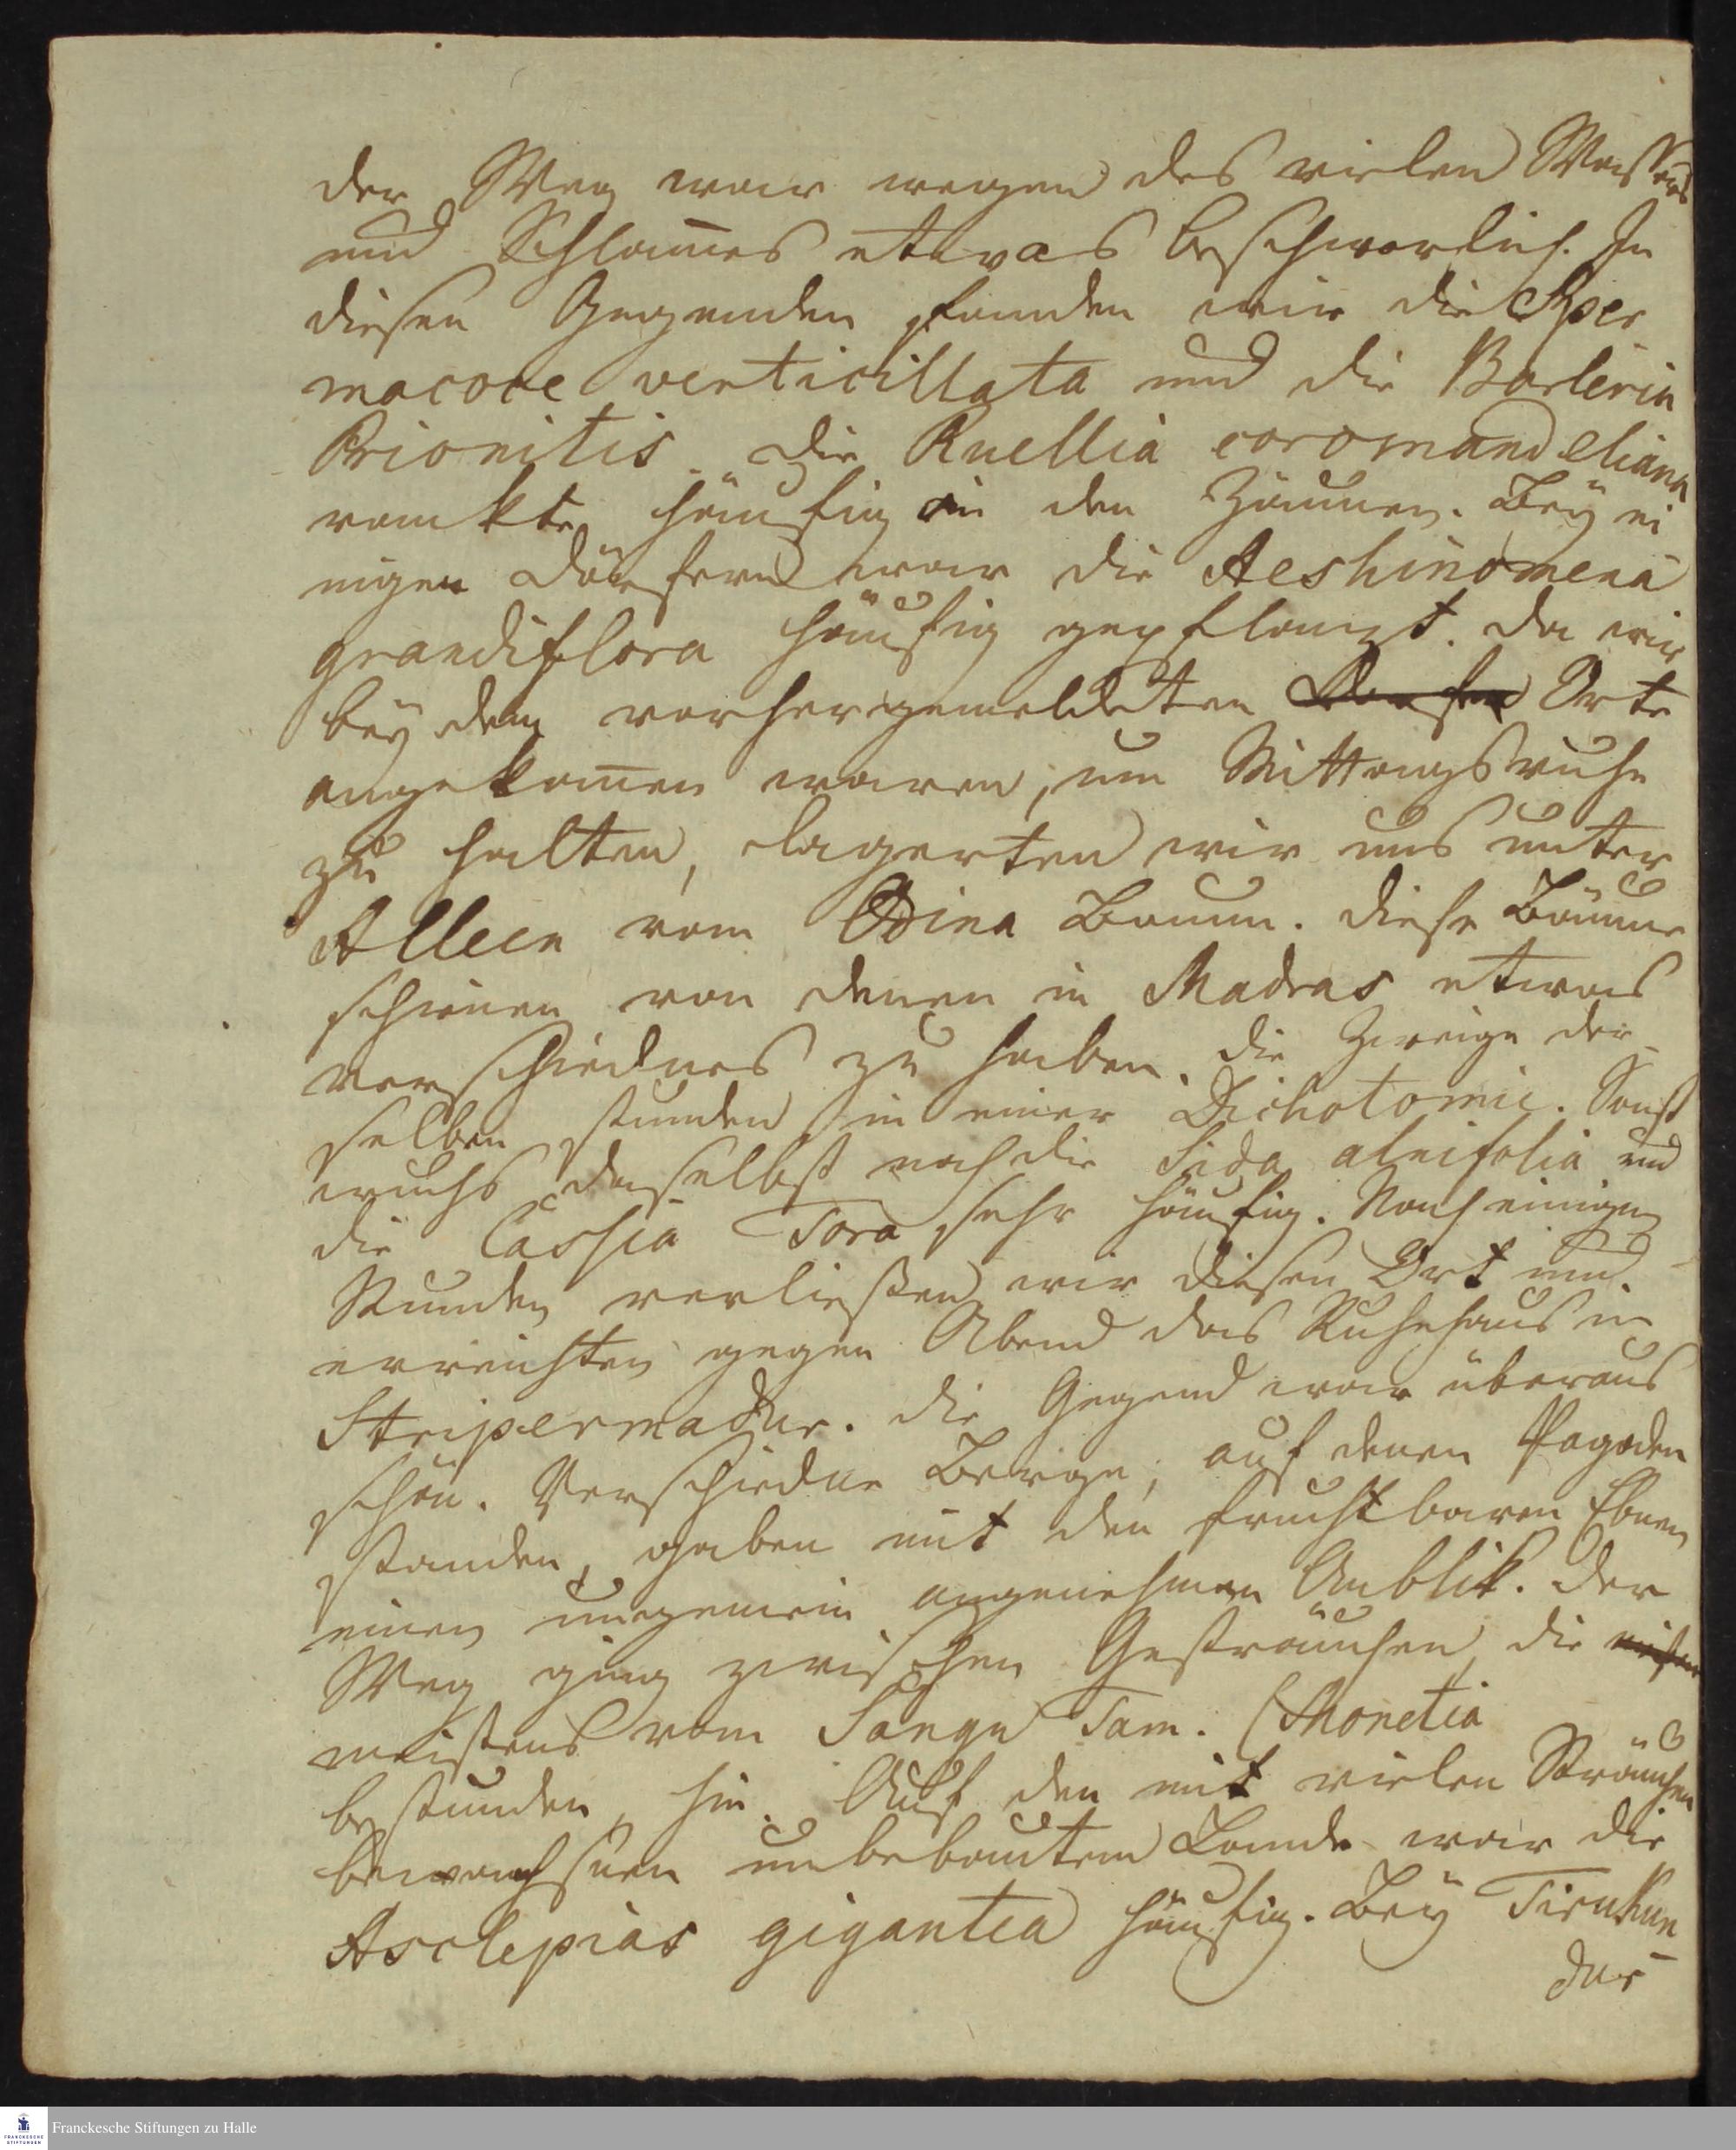 der Weg war wegen des vielen Wassers
und Schlam̄es etwas beschwerlich. In
diesen Gegenden fanden wir die Sper
macoce verticillata und die Barleria
Prionitis. Die Ruellia coromandeliana
rankte häufig in den Zäunen. Bey ei
nigen Dörfern war die Aeshinomena
grandiflora häufig gepflanzt. Da wir
bey dem vorhergemeldeten Orte
angekom̄en waren, um Mittagsruhe
zu halten, lagerten wir uns unter
Alleen vom Odina Baum. Diese Bäume
schienen von denen in Madras etwas
verschiednes zu haben. Die Zweige der-
selben stunden in einer Dichotomie. Sonst
wuchs daselbst noch die Sida alnifolia und
die Cassia Tora sehr häufig. Nach einigen
Stunden verließen wir diesen Ort und
erreichten gegen Abend das Ruhehaus in
Stripermadur. Die Gegend war überaus
schön. Verschiedne Berge, auf denen Pagoden
standen, gaben mit den fruchtbaren Ebnen
einen ungemein angenehmen Anblik. Der
Weg ging zwischen Gesträuchen, die
meistens vom Sangu Tam. (Monetia
bestunden, hin. Auf den mit vielen Sträuchen
bewachsnen unbebautem Lande war die
Asclepias gigantea häufig. Bey Tirukun
dur
Franckesche Stiftungen zu Halle
FRANCKESCHE
STIFTUNGEN